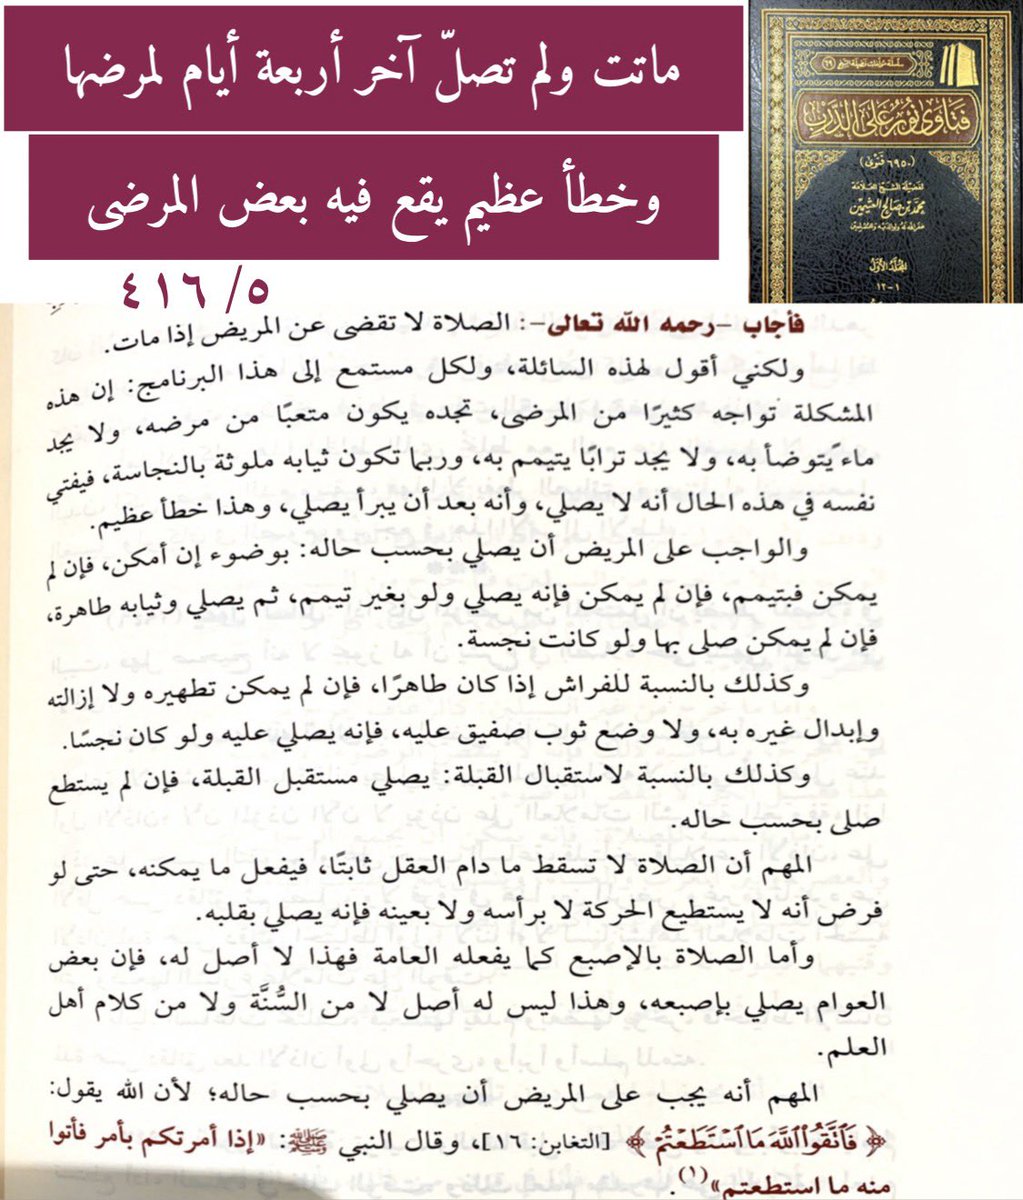 ماتت ولم تصلّ آخر أربعة أيام لمرضها
وخطأ عظيم يقع فيه بعض المرضى
٤١٦/٥
سلسلة مؤلفات فضيلة الشيخ (٦٩)
فتاوى نور على الدرب
(٦٩٥٠ فتوى)
لفضيلة الشيخ العلامة
محمد بن صالح العثيمين
غفر الله له ولوالديه وللمسلمين
المجلد الأول
١-١٢
فأجاب -رحمه الله تعالى-: الصلاة لا تقضى عن المريض إذا مات.
ولكني أقول لهذه السائلة، ولكل مستمع إلى هذا البرنامج: إن هذه
المشكلة تواجه كثيرًا من المرضى، تجده يكون متعبًا من مرضه، ولا يجد
ماءً يتوضأ به، ولا يجد ترابًا يتيمم به، وربما تكون ثيابه ملوثة بالنجاسة، فيفتي
نفسه في هذه الحال أنه لا يصلي، وأنه بعد أن يبرأ يصلي، وهذا خطأ عظيم.
والواجب على المريض أن يصلي بحسب حاله: بوضوء إن أمكن، فإن لم
يمكن فبتيمم، فإن لم يمكن فإنه يصلي ولو بغير تيمم، ثم يصلي وثيابه طاهرة،
فإن لم يمكن صلى بها ولو كانت نجسة.
وكذلك بالنسبة للفراش إذا كان طاهرًا، فإن لم يمكن تطهيره ولا إزالته
وإبدال غيره به، ولا وضع ثوب صفيق عليه، فإنه يصلي عليه ولو كان نجسًا.
وكذلك بالنسبة لاستقبال القبلة: يصلي مستقبل القبلة، فإن لم يستطع
صلى بحسب حاله.
المهم أن الصلاة لا تسقط ما دام العقل ثابتًا، فيفعل ما يمكنه، حتى لو
فرض أنه لا يستطيع الحركة لا برأسه ولا بعينه فإنه يصلي بقلبه.
وأما الصلاة بالإصبع كما يفعله العامة فهذا لا أصل له، فإن بعض
العوام يصلي بإصبعه، وهذا ليس له أصل لا من السُّنَّة ولا من كلام أهل
العلم.
المهم أنه يجب على المريض أن يصلي بحسب حاله؛ لأن الله يقول:
﴿فَاتَّقُوا اللَّهَ مَا اسْتَطَعْتُمْ﴾ [التغابن: ١٦]، وقال النبي ﷺ: «إذا أمرتكم بأمر فأتوا
منه ما استطعتم»(١).